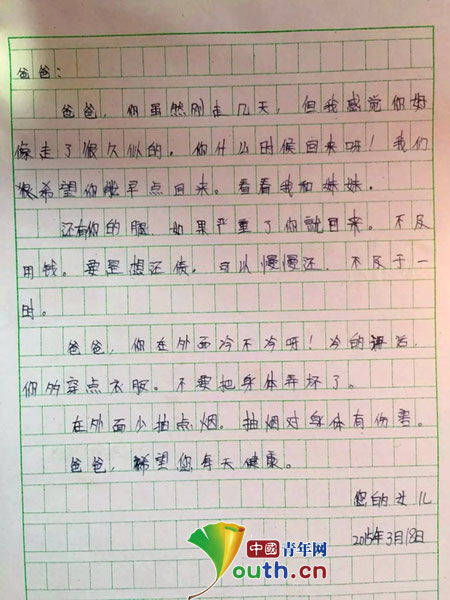 爸爸:
爸爸,你虽然刚走几天,但我感觉你好
像走了很久似的。你什么时候回来呀!我们
很希望你能早点回来。看看我和妹妹。
还有你的腿,如果严重了你就回来。不及
用钱。要是想还债,可以慢慢还,不及于一
时。
爸爸,你在外面冷不冷呀!冷的话,
你多穿点衣服。不要把身体弄坏了。
在外面少抽点烟。抽烟对身体有伤害。
爸爸,希望您每天健康。
您的女儿
2015年3月18日
中國青年网
Youth.cn